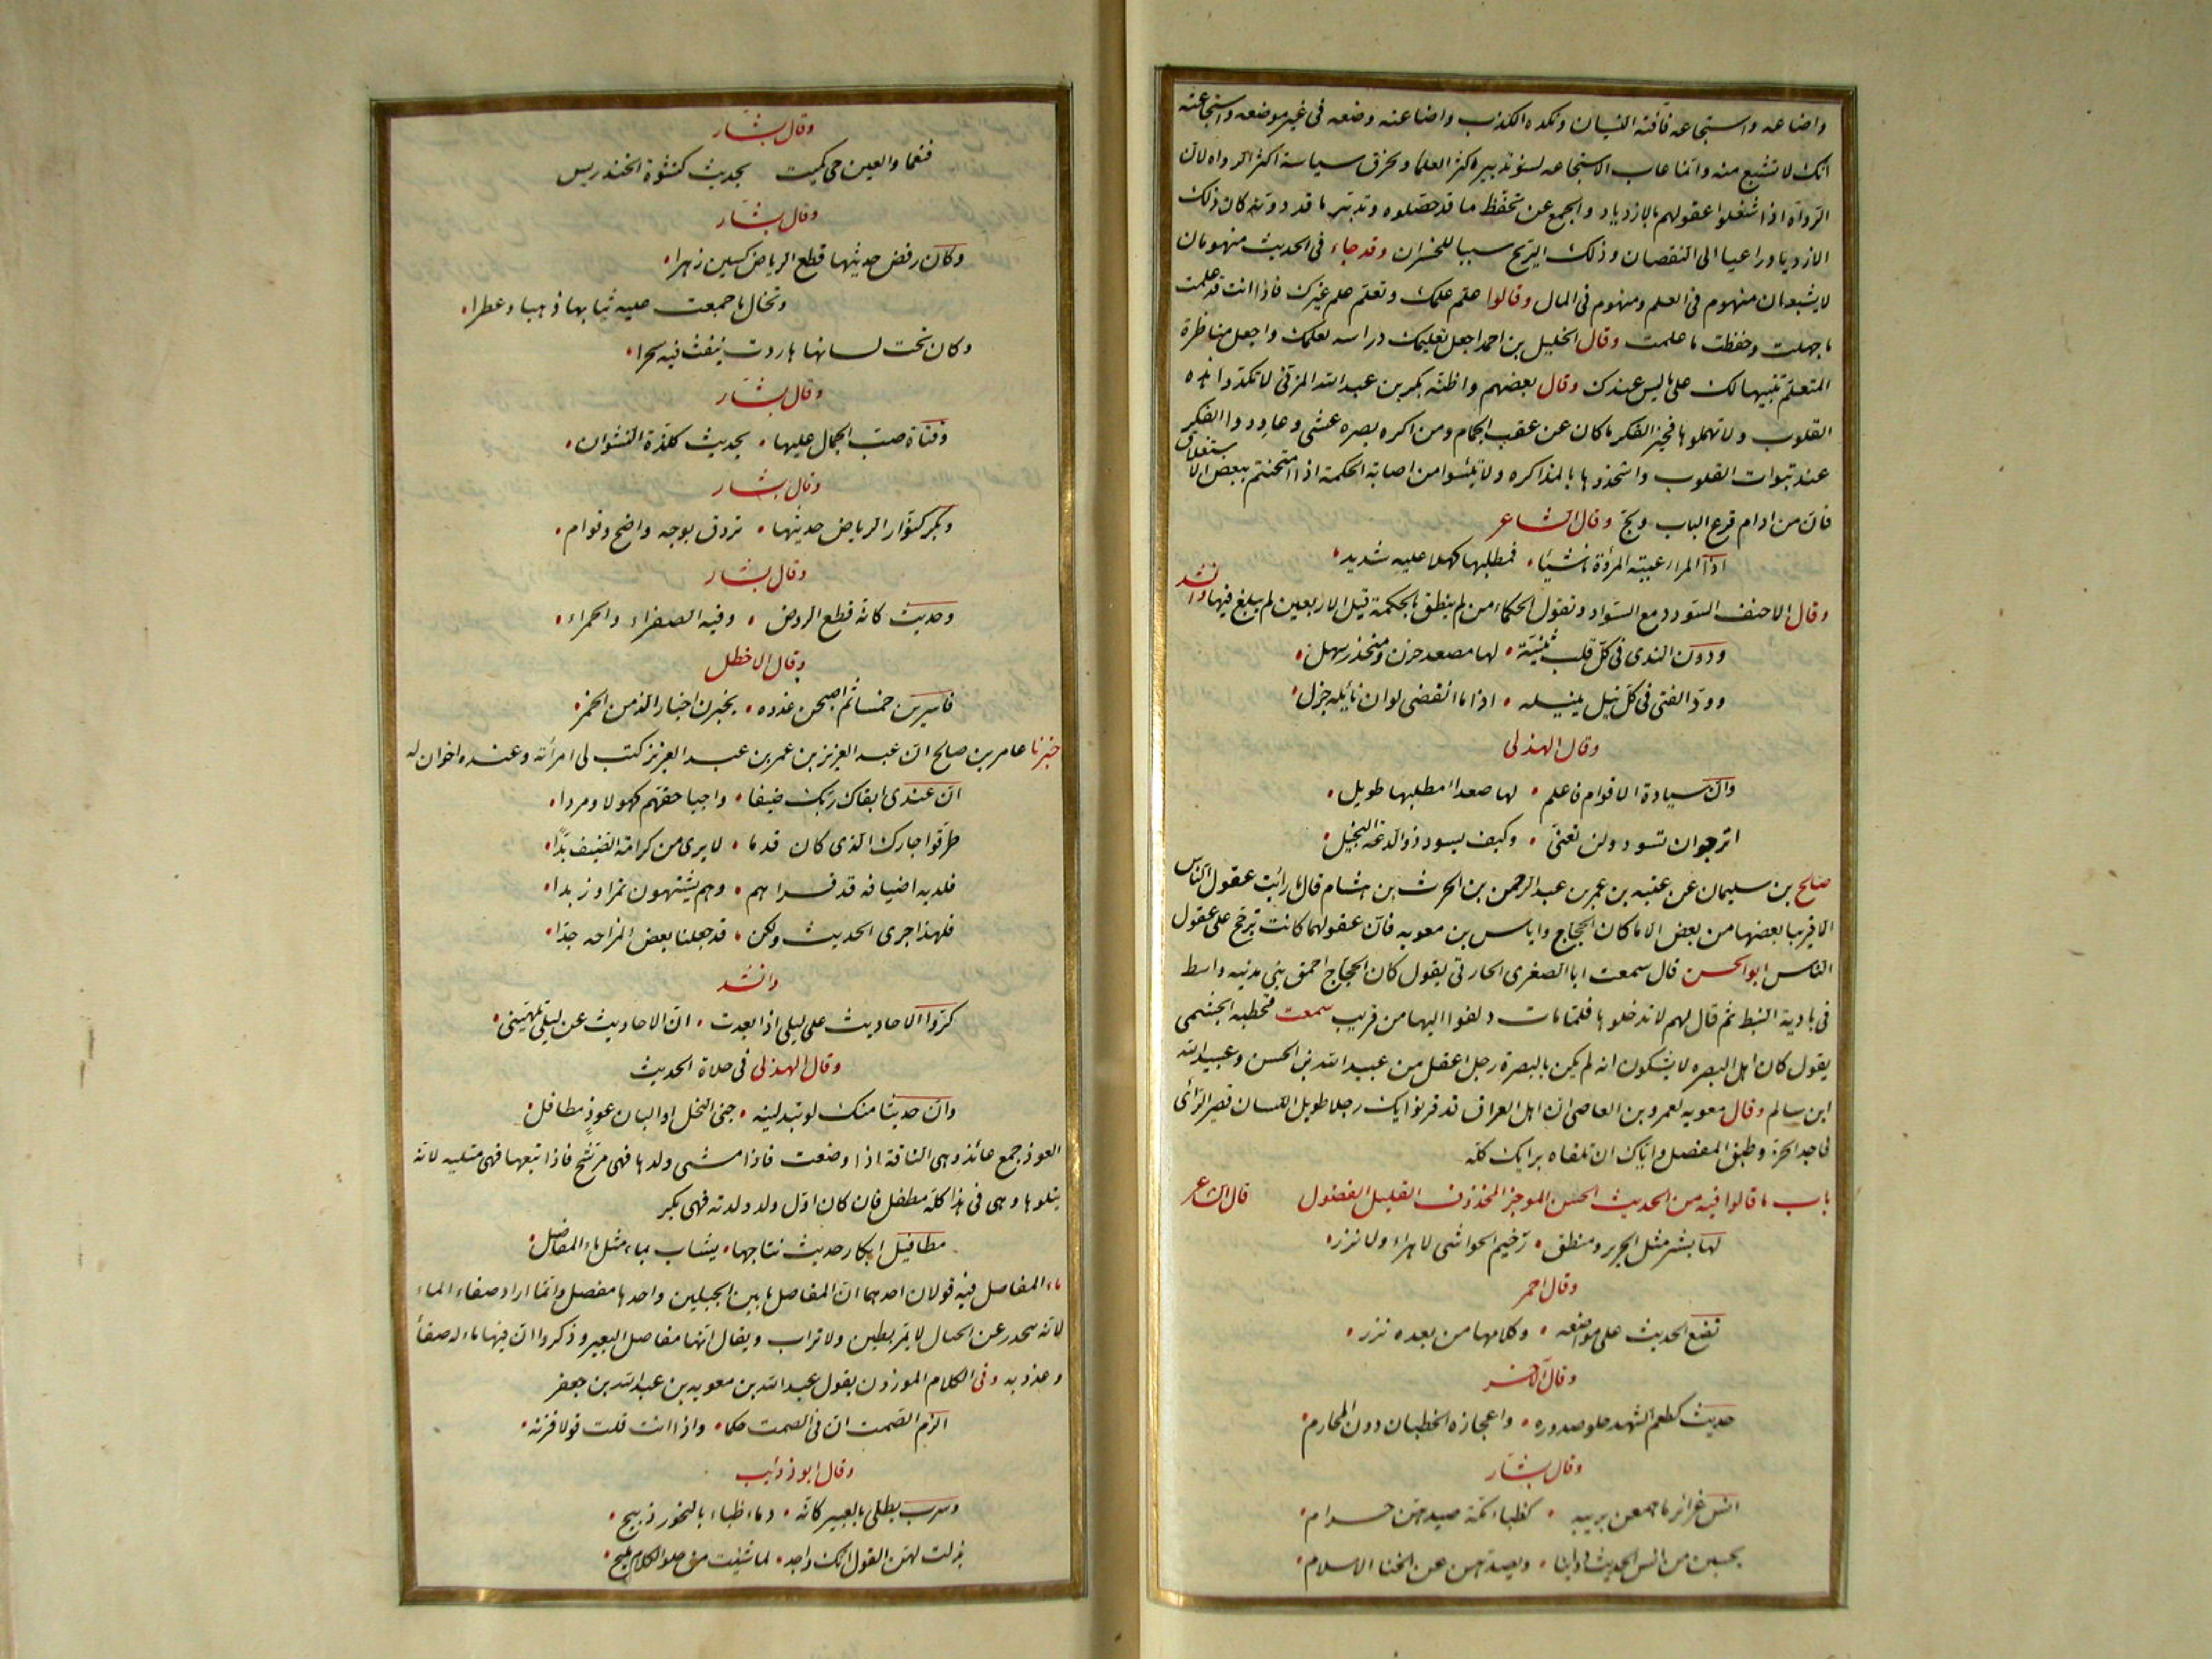 واضاعه واستجاعه فآفته النسيان ونكده الكذب واضاعته وضعه فى غير موضعه واستجاعته
انك لا تشبع منه وانما عاب الاستجاعه لسوء تدبير اكثر العلماء وخرق سياسة اكثر الرواه لان
الرواة اذا شغلوا عقولهم بالازدياد والجمع عن تحفظ ما قد حصلوه وتدبر ما قد دونه كان ذلك
الازدياد داعيا الى النقصان وذلك الربح سببا للخسران وقد جاء فى الحديث منهومان
لا يشبعان منهوم فى العلم ومنهوم فى المال وقالوا علم علمك وتعلم علم غيرك فاذا انت قد علمت
ما جهلت وحفظت ما علمت وقال الخليل بن احمد اجعل تعليمك دراسه لعلمك واجعل مناظرة
المتعلم تنبيها لك على ما ليس عندك وقال بعضهم واظنه بكر بن عبد الله المزنى لا تكدوا هذه
القلوب ولا تهملوها فخير الفكر ما كان عن عقب الجمام ومن اكره بصره عشى وعاودوا الفكر
عند نبوات القلوب واشحذوها بالمذاكره ولا تيئسوا من اصابة الحكمة اذا امتحنتم ببعض الاستغلاق
فان من ادام قرع الباب ولج وقال الشاعر
اذا المرء اعيته المروءة ناشيئا ۰ فمطلبها كهلا عليه شديد
وقال الاحنف السودد مع السواد وتقول الحكماء من لم ينطق بالحكمة قبل الاربعين لم يبلغ فيها وانشد
ودون الندى فى كل قلب ثنيّة ۰ لها مصعد حزن ومنحدر سهل
وود الفتى فى كل نيل ينيله ۰ اذا ما انقضى لو ان نائله جزل
وقال الهذلى
وان سيادة الاقوام فاعلم ۰ لها صعداء مطلبها طويل
اترجو ان تسود ولن تعنى ۰ وكيف يسود ذو الدعة البخيل
صالح بن سليمان عن عتبه بن عمر بن عبد الرحمن بن الحرث بن هشام قال ما رايت عقول الناس
الا قريبا بعضها من بعض الا ما كان الحجاج واياس بن معويه فان عقولهما كانت ترجح على عقول
الناس ابو الحسن قال سمعت ابا الصغرى الحارثى يقول كان الحجاج احمق بنى مدينه واسط
فى بادية النبط ثم قال لهم لا تدخلوها فلما مات دلفوا اليها من قريب سمعت قحطبه الجشمى
يقول كان اهل البصره لا يشكون انه لم يكن بالبصرة رجل اعقل من عبيد الله بن الحسن وعبيد الله
ابن سالم وقال معويه لعمرو بن العاصى ان اهل العراق قد قرنوا بك رجلا طويل اللسان قصير الرأى
فاجد الحز وطبق المفصل واياك ان تلقاه برايك كله
باب ما قالوا فيه من الحديث الحسن الموجز المحذوف القليل الفضول قال الشاعر
لها بشر مثل الحرير ومنطق ۰ رخيم الحواشى لا هراء ولا نزر
وقال احمر
تضع الحديث على مواضعه ۰ وكلامها من بعده نزر
وقال الآخر
حديث كطعم الشهد حلو صدوره ۰ واعجازه الخطبان دون المحارم
وقال بشار
انس غرائر ما هممن بريبه ۰ كظباء مكة صيدهن حرام
يحسبن من انس الحديث زوانيا ۰ ويصدهن عن الخنا الاسلام
وقال بشار
فنعما والعين حى كميت بحديث كنشوة الخندريس
وقال بشار
وكان رفض حديثها قطع الرياض كسين زهرا
وتخال ما جمعت عليه ثيابها ذهبا وعطرا
وكان تحت لسانها هاروت ينفث فيه سحرا
وقال بشار
وفتاة صب الجمال عليها ۰ بحديث كلذة النشوان
وقال بشار
وبكر كنوار الرياض حديثها ۰ تروق بوجه واضح وقوام
وقال بشار
وحديث كانه قطع الروض ۰ وفيه الصفراء والحمراء
وقال الاخطل
فاسرين خمسا ثم اصبحن غدوه ۰ يخبرن اخبارا الذ من الخمر
خبرنا عامر بن صالح ان عبد العزيز بن عمر بن عبد العزيز كتب لى امرأته وعنده اخوان له
ان عندى ابقاك ربك ضيفا ۰ واجبا حقهم كهولا ومردا
طرقوا جارك الذى كان قدما ۰ لا يرى من كرامة الضيف بدّا
فلديه اضيافه قد قراهم ۰ وهم يشتهون تمرا وزبدا
فلهذا جرى الحديث ولكن ۰ قد جعلنا بعض المزاحه جدا
وانشد
كروا الاحاديث على ليلى اذا بعدت ۰ ان الاحاديث عن ليلى تلهينى
وقال الهذلى فى حلاة الحديث
وان حديثا منك لو تبدلينه ۰ جنى النحل او البان عوذ مطافل
العوذ جمع عائذ وهى الناقة اذا وضعت فاذا مشى ولدها فهى مرشح فاذا تبعها فهى متليه لانه
يتلوها وهى فى هذا كله مطفل فان كان اول ولد ولدته فهى بكر
مطافيل ابكار حديث نتاجها ۰ يشاب بماء مثل ماء المفاصل
ماء المفاصل فيه قولان احدهما ان المفاصل ما بين الجبلين واحدها مفصل وانما اراد صفاء الماء
لانه ينحدر عن الجبال لا يمر بطين ولا تراب ويقال انها مفاصل البعير وذكروا ان فيها ماء له صفأ
وعذوبه وفى الكلام الموزون يقول عبد الله بن معويه بن عبد الله بن جعفر
الزم الصمت ان فى الصمت حكما ۰ واذا انت قلت قولا فزنه
وقال ابو ذؤيب
وسرب يطلى بالعبير كانه ۰ دماء ظباء بالنحور ذبيح
بذلت لهن القول انك واجد ۰ لما شئت من حلو الكلام مليح